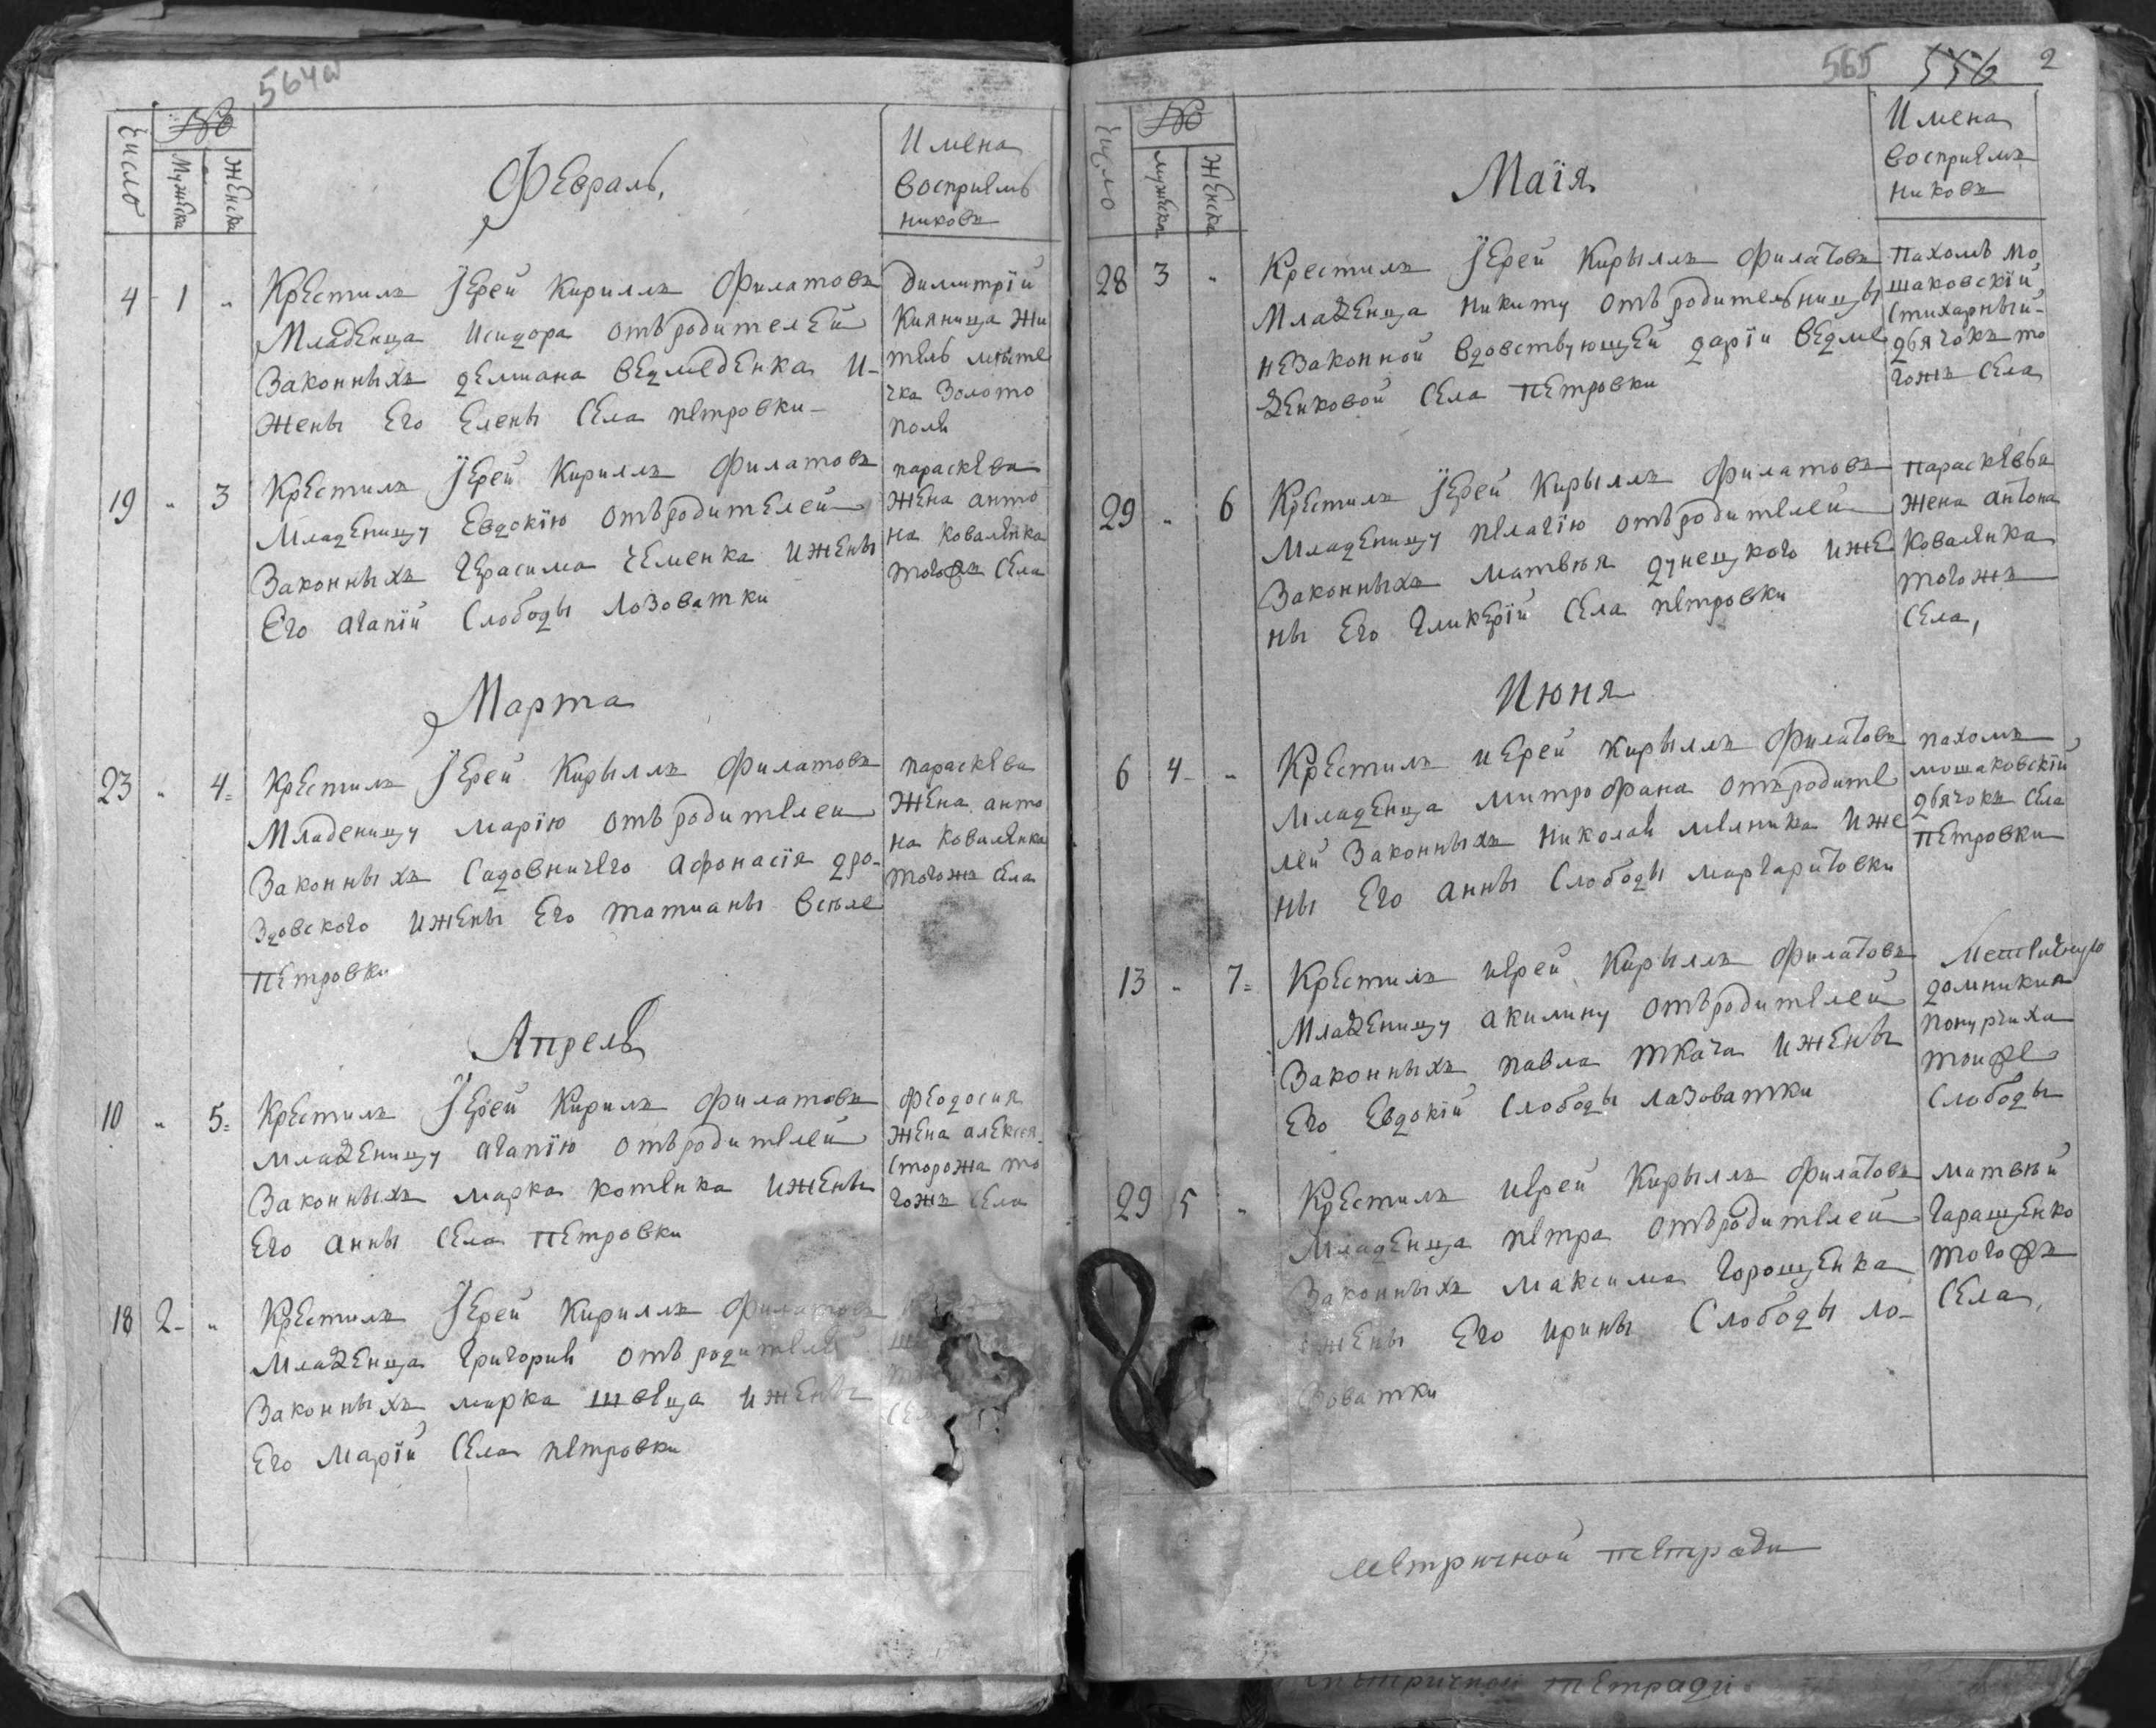 564а
Число
Мужеска
Женска
Февраль,
Имена
восприемъ
никовъ
4 1 „
Крестилъ Іерей Кириллъ Филатовъ
Младенца Исидора отъ родителей
Законныхъ демиана ведмеденка и
жены Его Елены Села петровки
Димитрїй
Кияница жи
тель месте
чка Золото
поля
19 „ 3
Крестилъ Іерей Кириллъ Филатовъ
Младеницу Евдокїю отъ родителей
Законныхъ Герасима Чеменка и жены
Его агапїи Слободы Лозоватки
параскева
жена анто
на коваленка
тогожъ Села
Марта
23 „ 4
Крестилъ Іерей Кирыллъ Филатовъ
Младеницу марїю отъ родителей
Законныхъ Садовничего афонасїя дро-
здовского и жены Его татианы в селе
петровки
параскева
жена анто
на коваленка
тогожъ Села
Апрель
10 „ 5
Крестилъ Іерей Кирилъ Филатовъ
младеницу агапїю отъ родителей
Законныхъ марка котенка и жены
Его анны Села петровки
Феодосия
жена алексея
Сторожа то
гожъ Села
18 2 „
Крестилъ Іерей Кириллъ Филатовъ
младенца григория отъ родителей
Законныхъ марка швеца и жены
Его марїи Села петровки
565 556 2
Число
мужеска
Женска
Маїя
Имена
восприемъ
никовъ
28 3 „
Крестилъ Іерей Кирыллъ Филатовъ
Младенца никиту отъ родительницы
незаконной вдовствующей дарїи ведме
денковой Села петровки
Пахомъ мо
шаковскїй
Стихарный
дьячокъ то
гожъ Села
29 „ 6
Крестилъ Іерей Кирыллъ Филатовъ
Младеницу пелагїю отъ родителей
Законныхъ матвея дунецкого и же
ны Его гликерїи Села петровки
параскевва
жена антона
коваленка
тогожъ
Села,
Июня
6 4 „
Крестилъ иерей Кирыллъ Филатовъ
младенца митрофана отъ родите
лей Законныхъ николая мелника и же
ны Его анны Слободы маргаритовки
пахомъ
мошаковскїй
дьячокъ Села
петровки
13 „ 7
Крестилъ иерей Кирыллъ Филатовъ
младеницу акилину отъ родителей
Законныхъ павла ткача и жены
Его Евдокїи Слободы лазоватки
домникия
понурчиха
тойже
Слободы
29 5 „
Крестилъ иерей Кирыллъ Филатовъ
младенца петра отъ родителей
Законныхъ максима горощенка
и жены Его ирины Слободы ло-
зоватки
матвей
гаращенко
тогожъ
Села,
метричной тетради
метричной тетради